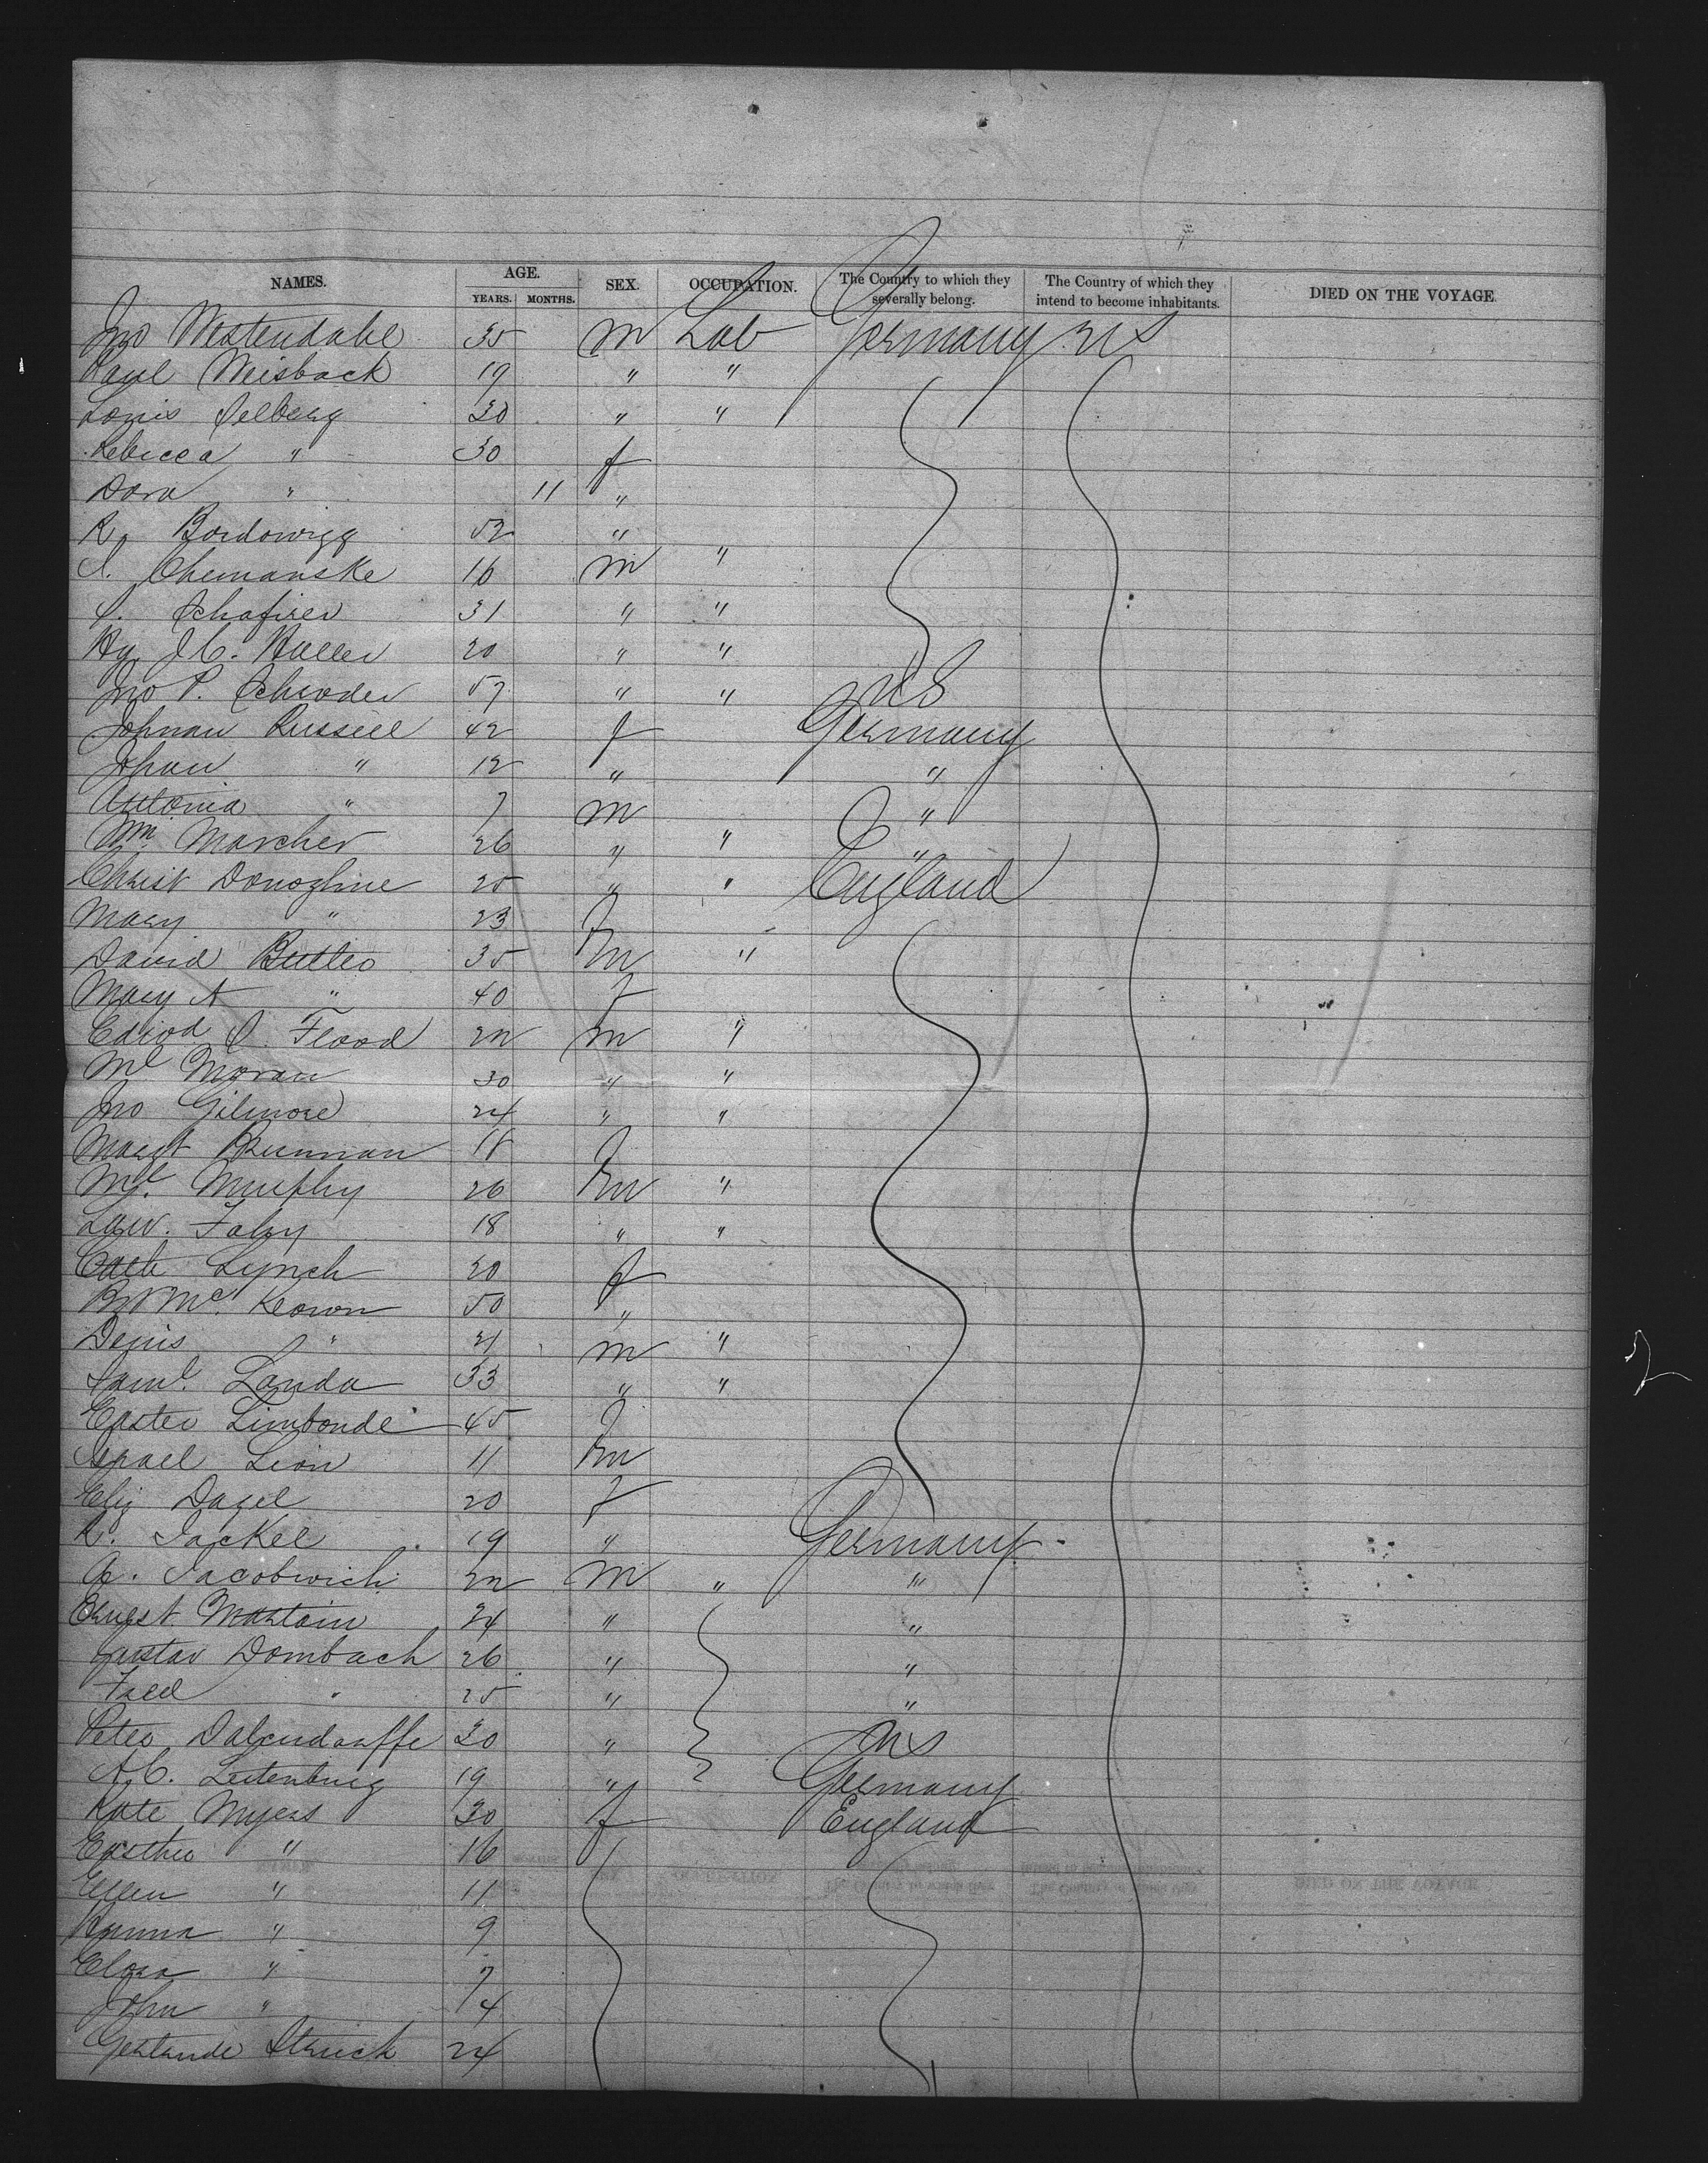 NAMES. AGE. SEX. OCCUPATION. The Country to which they severally belong. The Country of which they intend to become inhabitants. DIED ON THE VOYAGE.
YEARS. MONTHS.
Jno Westendahl 35 m Lab Germany US
Paul Weisback 19 " "
Louis Selberg 30 " "
Rebicca " 30 f
Dora " 11 "
R. Bordowigg 52 "
Chemanske 16 m "
Schafirer 31 " "
Hy. J.C. Haller 20 " "
Jno P. Schroder 57 " " US
Johnan Russell 42 f Germany
Johan " 12 " "
Antonia " 7 m "
Wm Marcher 26 " " "
Christ Donoghue 25 " " England
Mary " 23 f
David Butler 35 m "
Mary A " 40 f
Edwd Flood 22 m "
Ml Moran 30 " "
Jno Gilmore 24 " "
Margt Brennan 18 f
Ml. Murphy 26 m "
Law. Fahy 18 " "
Cath Lynch 20 f
Bt McKeown 50 "
Denis " 21 m "
Saml. Landa 33 " "
Easter Limbonde 45 f
Israel Lion 11 m
Eliz Dagel 20 f
R. Jackel 19 " Germany
A. Jacobwich 22 m " "
Ernest Martain 24 " "
Gustav Dombach 26 " "
Fred " 25 " "
Peter Dalendorffe 30 " US
A.C. Leitenburg 19 " Germany
Kate Myers 30 f England
Easther " 16
Ellen " 11
Hanna " 9
Clara " 7
John " 4
Gertrude Struck 24